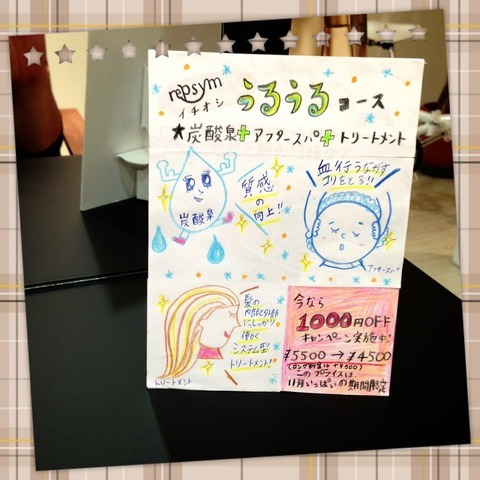 repsym
イチオシ うるうるコース
★炭酸泉+アフタースパ+トリートメント
炭酸泉
質感
の
向上!!
血行うながす
コリをとる!!
アフタースパ
髪の
内部と外部
にしっかり
働く
システム型
トリートメント!
トリートメント
今なら
1000円OFF
キャンペーン実施中!
¥5500→¥4500
(ロング料金は+¥500)
このプライスは、
11月いっぱいの期間限定